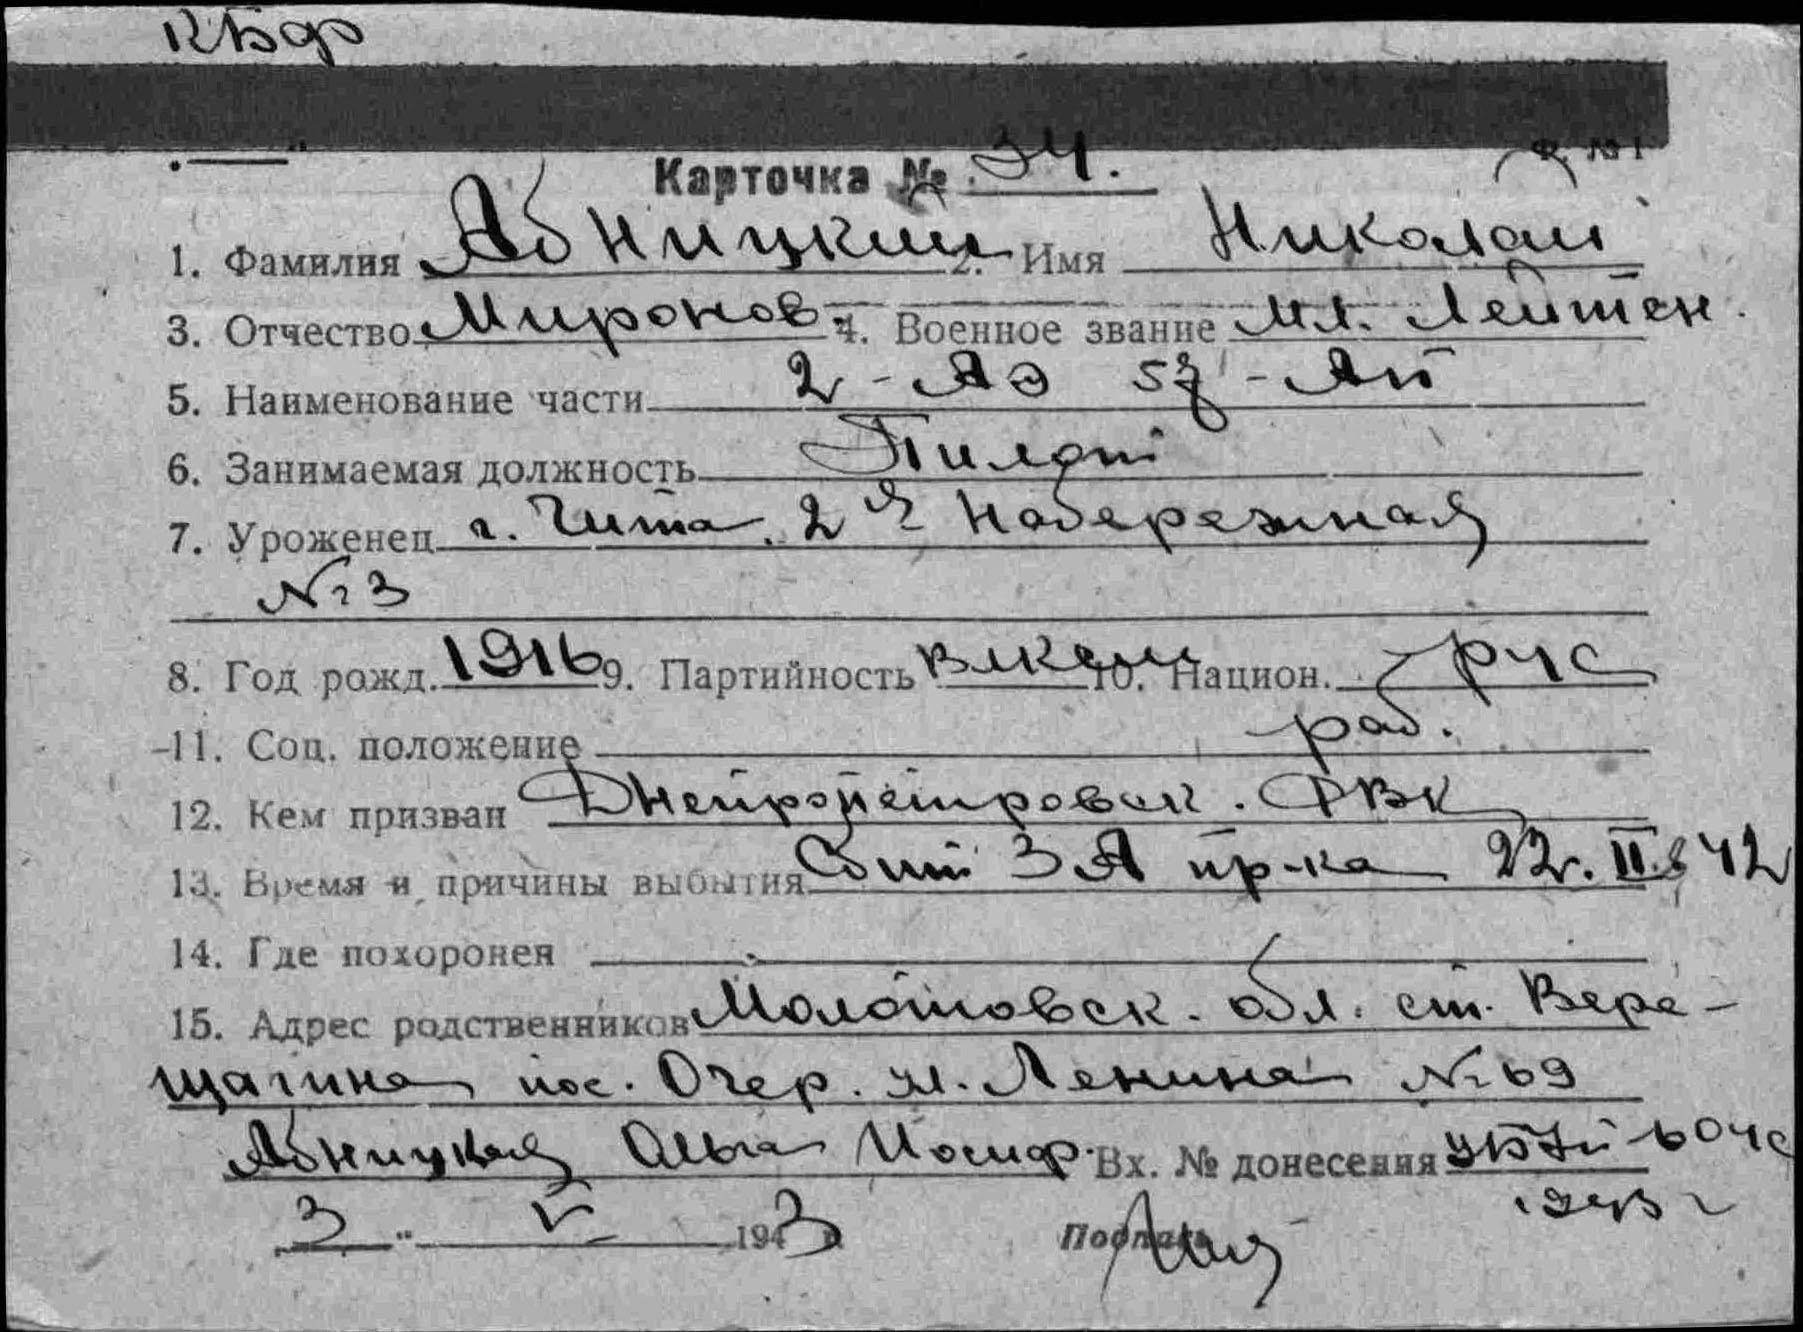 КБФ
Карточка № 34.
Ф. № 1
1. Фамилия Абницкий 2. Имя Николай
3. Отчество Миронов. 4. Военное звание мл. лейтен.
5. Наименование части 2-АЭ 57-АП
6. Занимаемая должность Пилот
7. Уроженец г. Чита, 2я Набережная
№ 3
8. Год рожд. 1916 9. Партийность ВЛКСМ 10. Национ. рус
11. Соц. положение раб.
12. Кем призван Днепропетровск. РВК
13. Время и причины выбытия Сбит ЗА пр-ка 22. II. 42
14. Где похоронен
15. Адрес родственников Молотовск. обл. ст. Вере-
щагина пос. Очер. ул. Ленина № 69
Абницкая Ольга Иосиф. Вх. № донесения
3 " V 1943
1943 г
Подпись